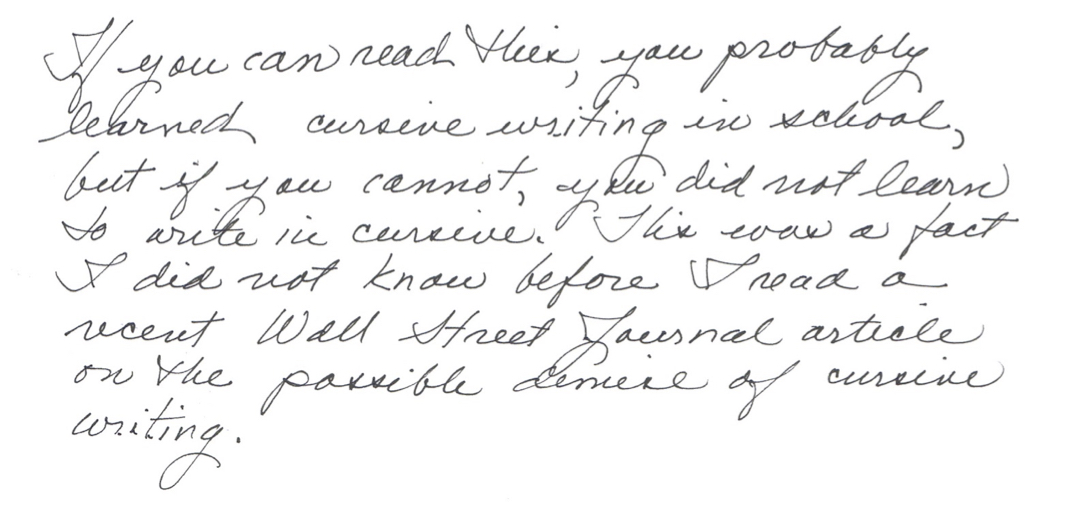 If you can read this, you probably
learned cursive writing in school,
but if you cannot, you did not learn
to write in cursive. This was a fact
I did not know before I read a
recent Wall Street Journal article
on the possible demise of cursive
writing.